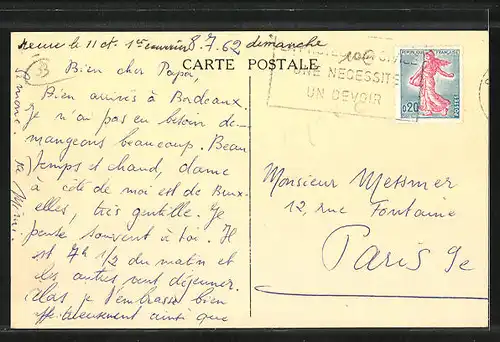 le 11 ct. 1er courrier 8.7.62 dimanche
CARTE POSTALE
UNE NECESSITE
UN DEVOIR
REPUBLIQUE FRANCAISE
0,20
POSTES
Bien cher Papa,
Bien arrivés à Bordeaux.
Je n'ai pas eu besoin de
mangeons beaucoup. Beau
temps et chaud, dame
à côté de moi est de Brux-
elles, très gentille. Je
pense souvent à toi. Il
est 7h 1/2 du matin et
les autres vont déjeuner.
Alors, je t'embrasse bien
affectueusement ainsi que
Monsieur Messmer
12, rue Fontaine
Paris 9e